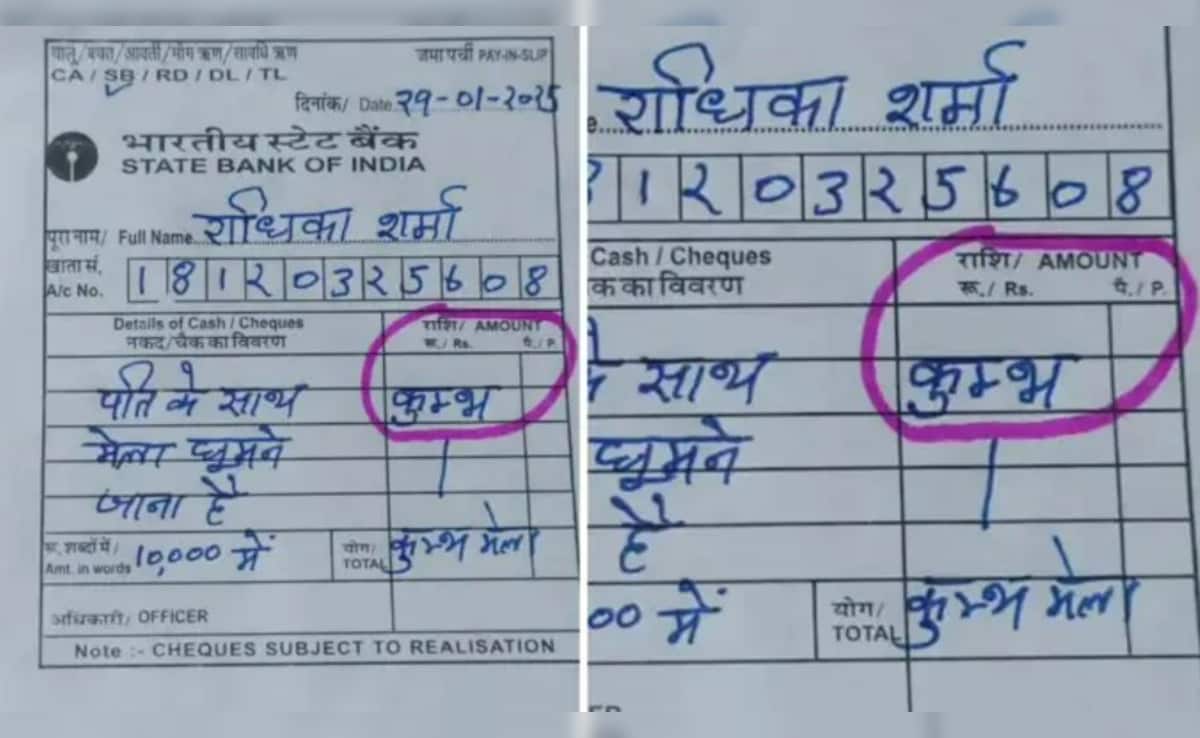 चालू/बचत/आवर्ती/माँग ऋण/सावधि ऋण
जमा पर्ची PAY-IN-SLIP
CA / SB / RD / DL / TL
दिनांक/ Date २१-०१-२०२5
भारतीय स्टेट बैंक
STATE BANK OF INDIA
पूरा नाम/ Full Name राधिका शर्मा
खाता सं.
A/c No. 18120325608
Details of Cash / Cheques
नकद/चैक का विवरण
राशि/ AMOUNT
रू./ Rs. पै./ P.
पति के साथ कुम्भ
मेला घूमने
जाना है
रू. शब्दों में/
Amt. in words 10,000 में
योग/
TOTAL कुम्भ मेला
अधिकारी/ OFFICER
Note :- CHEQUES SUBJECT TO REALISATION
राधिका शर्मा
120325608
Cash / Cheques
क का विवरण
राशि/ AMOUNT
रू./ Rs. पै./ P.
के साथ कुम्भ
घूमने
है
00 में
योग/
TOTAL कुम्भ मेला